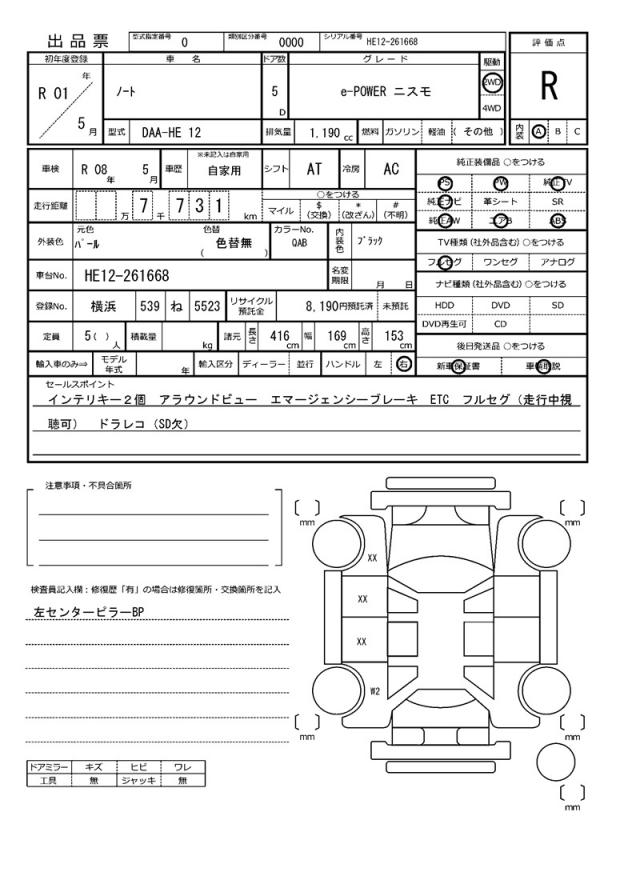 出品票 型式指定番号 0 類別区分番号 0000 シリアル番号 HE12-261668
評価点
R
内装 A B C
初年度登録 車名 ドア数 グレード 駆動
R 01 年 5 月 ノート 5 D e-POWER ニスモ 2WD 4WD
型式 DAA-HE 12 排気量 1,190 cc 燃料 ガソリン 軽油 ( その他 )
車検 R 08 年 5 月 車歴 ※未記入は自家用 自家用 シフト AT 冷房 AC
走行距離 万 7 千 7 3 1 km ○をつける
マイル $ (交換) * (改ざん) # (不明)
外装色 元色 パール 色替 ( 色替無 ) カラーNo. QAB 内装色 ブラック
車台No. HE12-261668 名変期限 月 日
登録No. 横浜 539 ね 5523 リサイクル預託金 8,190円預託済 未預託
定員 5( ) 人 積載量 kg 諸元 長さ 416 cm 幅 169 cm 高さ 153 cm
輸入車のみ⇒ モデル年式 年 輸入区分 ディーラー 並行 ハンドル 左 右
純正装備品 ○をつける
PS PW 純正TV
純正ナビ 革シート SR
純正AW エアB ABS
TV種類 (社外品含む) ○をつける
フルセグ ワンセグ アナログ
ナビ種類 (社外品含む) ○をつける
HDD DVD SD
DVD再生可 CD
後日発送品 ○をつける
新車保証書 車輌取説
セールスポイント
インテリキー２個 アラウンドビュー エマージェンシーブレーキ ETC フルセグ（走行中視
聴可） ドラレコ（SD欠）
注意事項・不具合箇所
検査員記入欄：修復歴「有」の場合は修復箇所・交換箇所を記入
左センターピラーBP
ドアミラー キズ ヒビ ワレ
工具 無 ジャッキ 無
mm
mm
XX
XX
XX
W2
mm
mm
mm